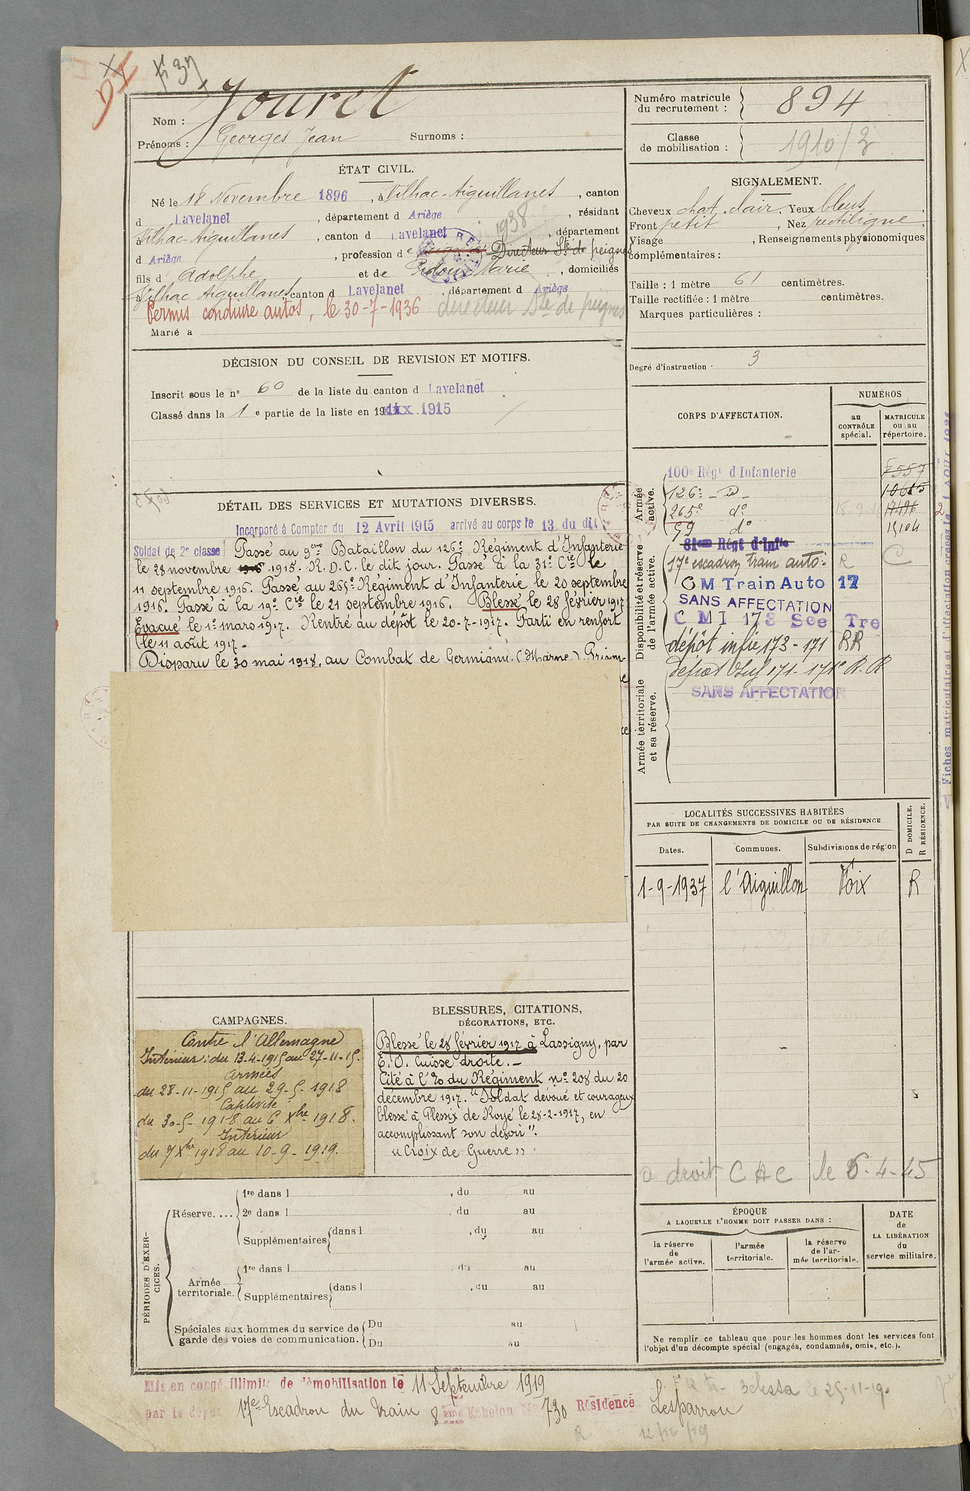 F 37
Nom : Jouret
Prénoms : Georges Jean Surnoms :
Numéro matricule du recrutement : 894
Classe de mobilisation : 1910/2
ÉTAT CIVIL.
Né le 18 Novembre 1896, à Tilhac-Aiguillanes, canton
d Lavelanet, département d Ariège, résidant
Tilhac-Aiguillanes, canton d Lavelanet, département
d Ariège, profession d Directeur Sté de peignes
fils d Adolphe et de Marie, domiciliés
Tilhac Aiguillanes, canton d Lavelanet, département d Ariège
Permis conduire autos, le 30-7-1936 directeur Sté de peignes
1938
Marié à
SIGNALEMENT.
Cheveux chat. clair. Yeux bleus
Front petit, Nez rectiligne
Visage, Renseignements physionomiques
complémentaires :
Taille : 1 mètre 61 centimètres.
Taille rectifiée : 1 mètre centimètres.
Marques particulières :
Degré d'instruction : 3
DÉCISION DU CONSEIL DE REVISION ET MOTIFS.
Inscrit sous le n° 60 de la liste du canton d Lavelanet
Classé dans la 1e partie de la liste en 1915
DÉTAIL DES SERVICES ET MUTATIONS DIVERSES.
Incorporé à Compter du 12 Avril 1915 arrivé au corps le 13 du dit
Soldat de 2e classe Passé au 9me Bataillon du 126e Régiment d'Infanterie
le 28 novembre 1915. R.D.C. le dit jour. Passé à la 31e Cie le
11 septembre 1916. Passé au 265e Régiment d'Infanterie le 20 septembre
1916. Passé à la 19e Cie le 21 septembre 1916. Blessé le 28 février 1917
Evacué le 1er mars 1917. Rentré au dépôt le 20-7-1917. Parti en renfort
le 11 août 1917.
Disparu le 30 mai 1918, au Combat de Germigni (Marne)
CORPS D'AFFECTATION.
NUMÉROS
au CONTRÔLE spécial.
MATRICULE ou au répertoire.
Armée active.
100e Régt d'Infanterie
126e d°
265e d°
59 d°
15104
Disponibilité et réserve de l'armée active.
81eme Régt d'Infie
17e escadron train auto. R C
C M Train Auto 17
SANS AFFECTATION
C M I 173 Sce Tre
dépôt infie 173-171 RR
Armée territoriale et sa réserve.
dépôt Inf 171-171e R.R
SANS AFFECTATION
LOCALITÉS SUCCESSIVES HABITÉES
PAR SUITE DE CHANGEMENTS DE DOMICILE OU DE RÉSIDENCE
Dates. Communes. Subdivisions de région D DOMICILE. R RÉSIDENCE.
1-9-1937 l'Aiguillon Foix R
a droit C A C le 6-4-45
CAMPAGNES.
Contre l'Allemagne
Intérieur : du 13-4-1915 au 27-11-15.
Armées
du 28-11-1915 au 29-5-1918
Captivité
du 30-5-1918 au 6 Xbre 1918.
Intérieur
du 7 Xbre 1918 au 10-9-1919.
BLESSURES, CITATIONS,
DÉCORATIONS, ETC.
Blessé le 28 février 1917 à Lassigny, par
E.O. Cuisse droite.
Cité à l'Ordre du Régiment n° 208 du 20
décembre 1917. "Soldat dévoué et courageux
blessé à Plessix de Roye le 28-2-1917, en
accomplissant son devoir".
"Croix de Guerre"
PÉRIODES D'EXERCICES.
Réserve. ...
1re dans l , du au
2e dans l , du au
Supplémentaires dans l , du au
Armée territoriale.
1re dans l , du au
Supplémentaires dans l , du au
Spéciales aux hommes du service de garde des voies de communication.
Du au
Du au
ÉPOQUE
A LAQUELLE L'HOMME DOIT PASSER DANS :
la réserve de l'armée active.
l'armée territoriale.
la réserve de l'armée territoriale.
DATE de LA LIBÉRATION du service militaire.
Ne remplir ce tableau que pour les hommes dont les services font
l'objet d'un décompte spécial (engagés, condamnés, omis, etc.).
Mis en congé illimité de démobilisation le 11 Septembre 1919
par le dépôt 17e Escadron du Train 8eme Echelon No 730 Résidence Lesparrou
le 25-11-19.